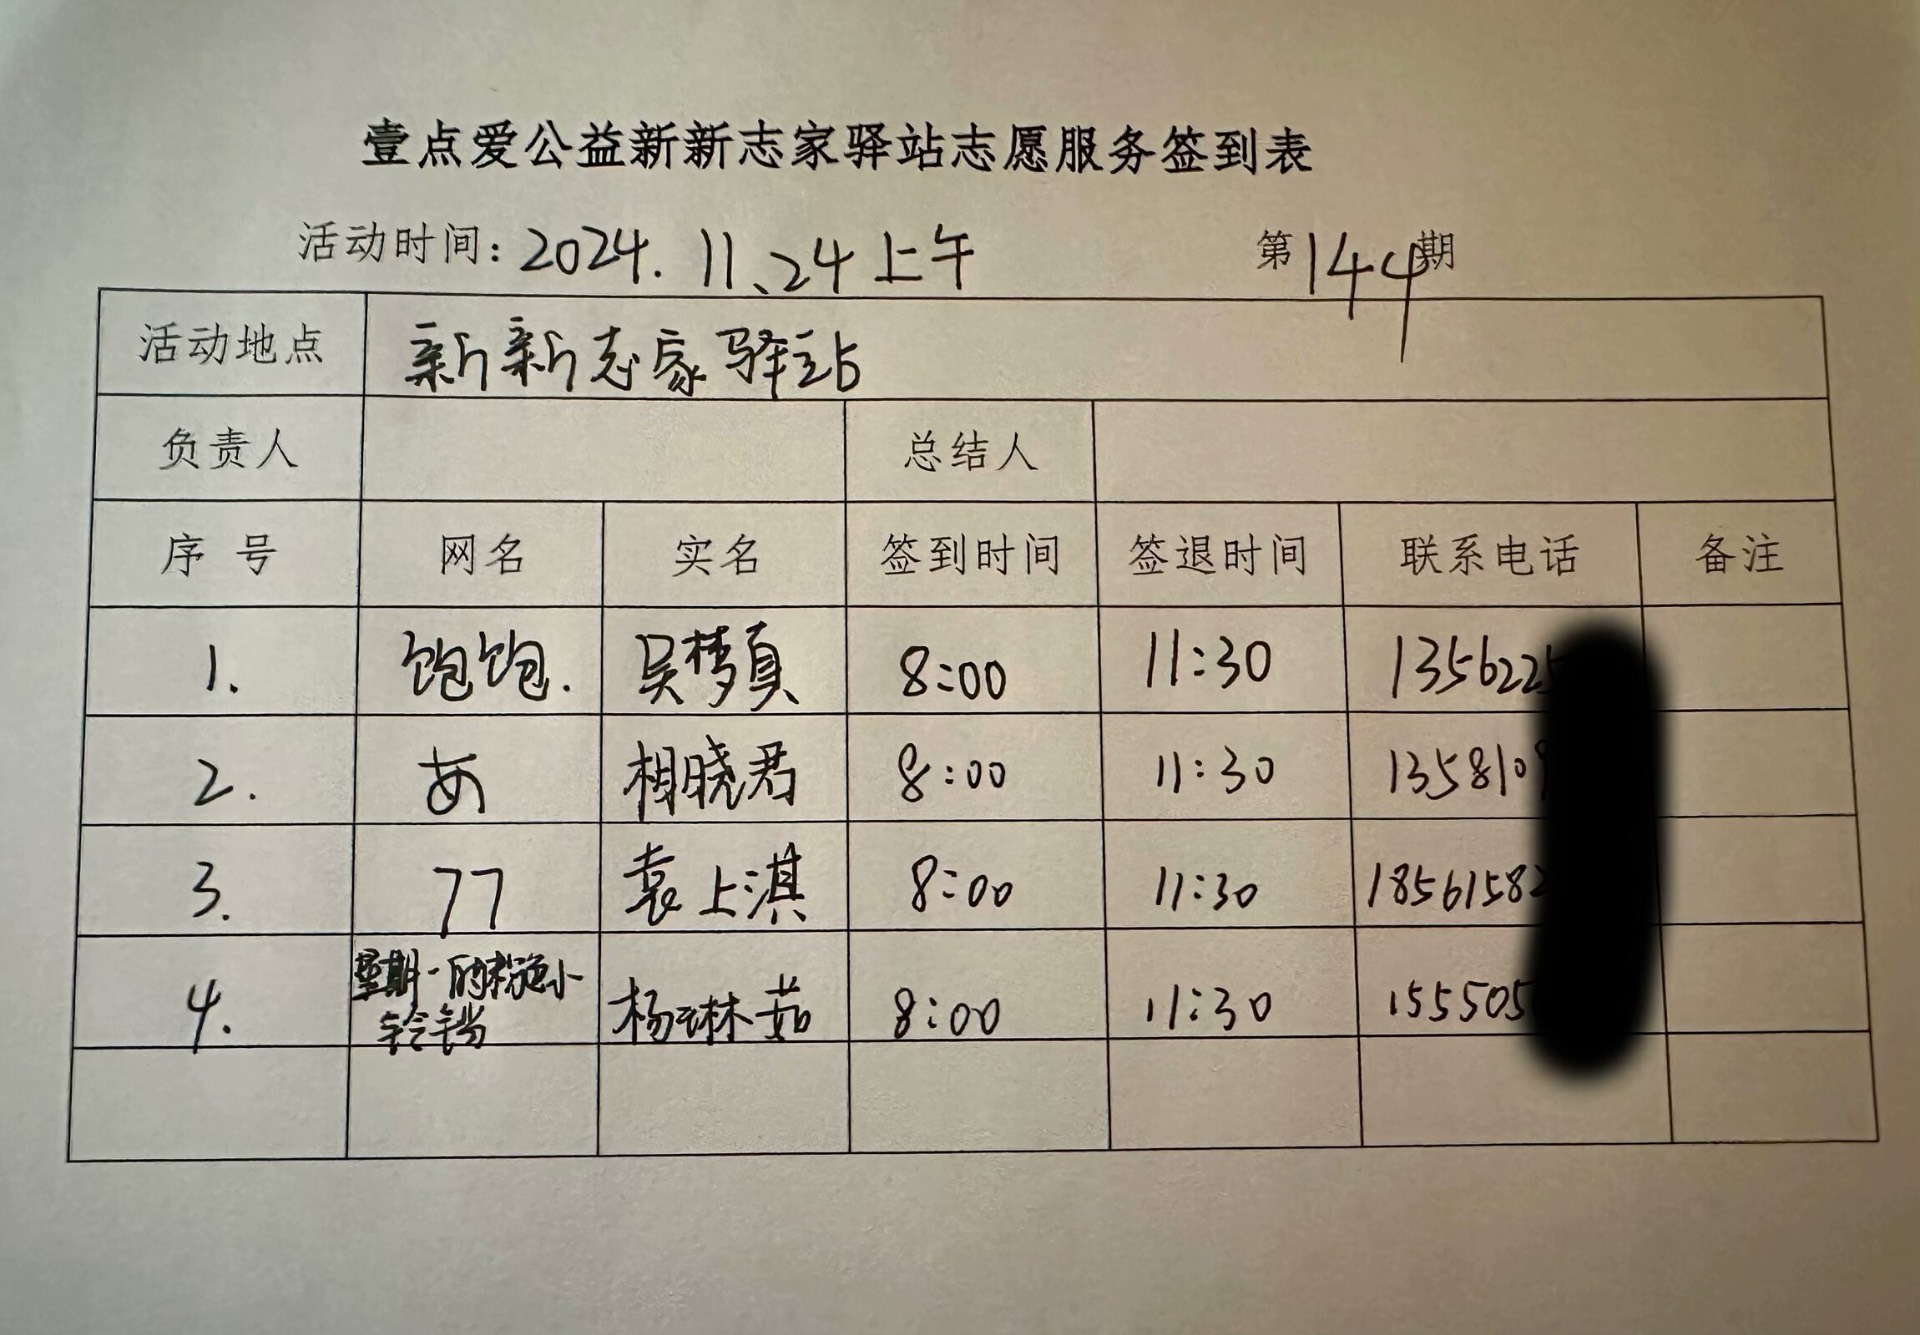 壹点爱公益新新志家驿站志愿服务签到表
活动时间: 2024.11.24上午 第144期
活动地点 新新志家驿站
负责人 总结人
序号 网名 实名 签到时间 签退时间 联系电话 备注
1. 饱饱. 吴梦真 8:00 11:30 1356225
2. あ 相晓君 8:00 11:30 135810
3. 77 袁上淇 8:00 11:30 18561582
4. 星期一的粉色小 杨琳茹 8:00 11:30 155505
铃铛